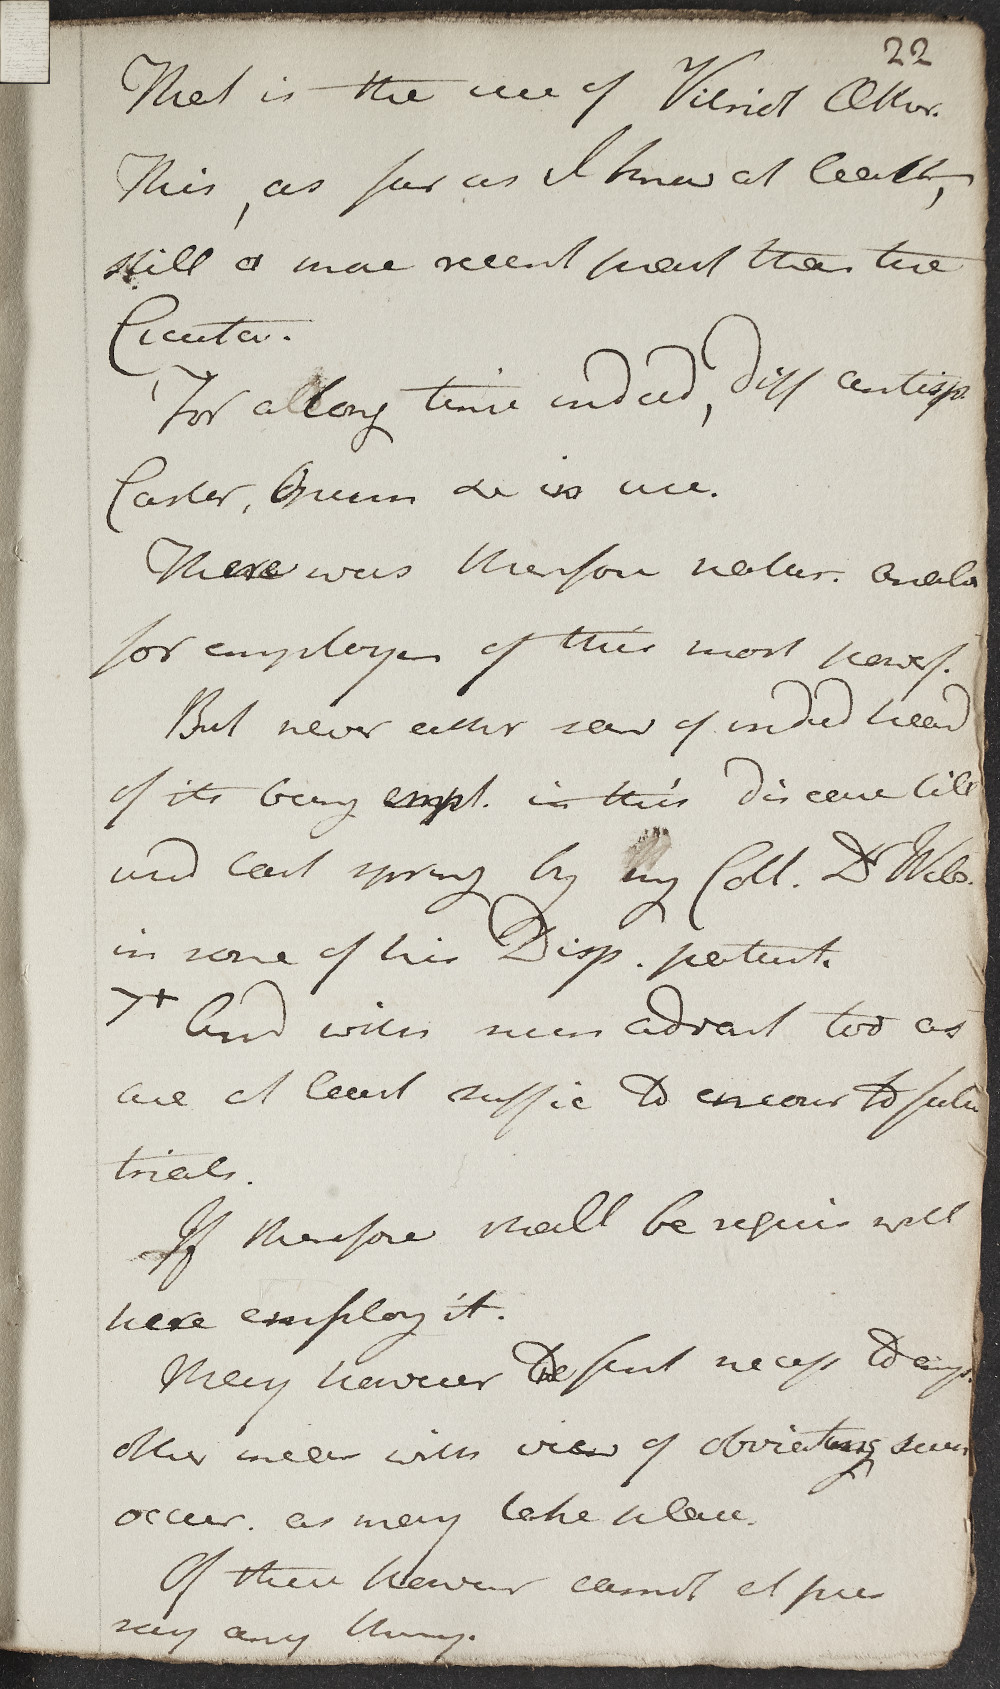 22
That is the use of Vitriol Æther.
This, as far as I know at least,
still a more recent pract than the
Cicuta.
For a long time indeed, diff antisp.
Castor, Opium &c in use.
There was therefore natur. analo
for employm of this most powerf.
But never either saw of indeed heard
of its being empl. in this disease till
und last spring by my Coll. Dr Web.
in some of his Disp. patient.
7+ And with such advant too as
are at least suffic to encour to futu
trials.
If therefore shall be requis will
here employ it.
May however be fart necess to emp.
other meas with view of obviating sever
occur. as may take place.
Of these however cannot at pres
say any thing.